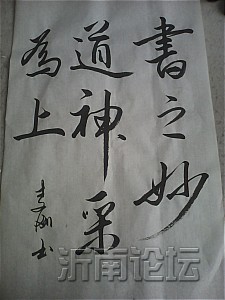 書之妙
道神采
為上
沂南论坛